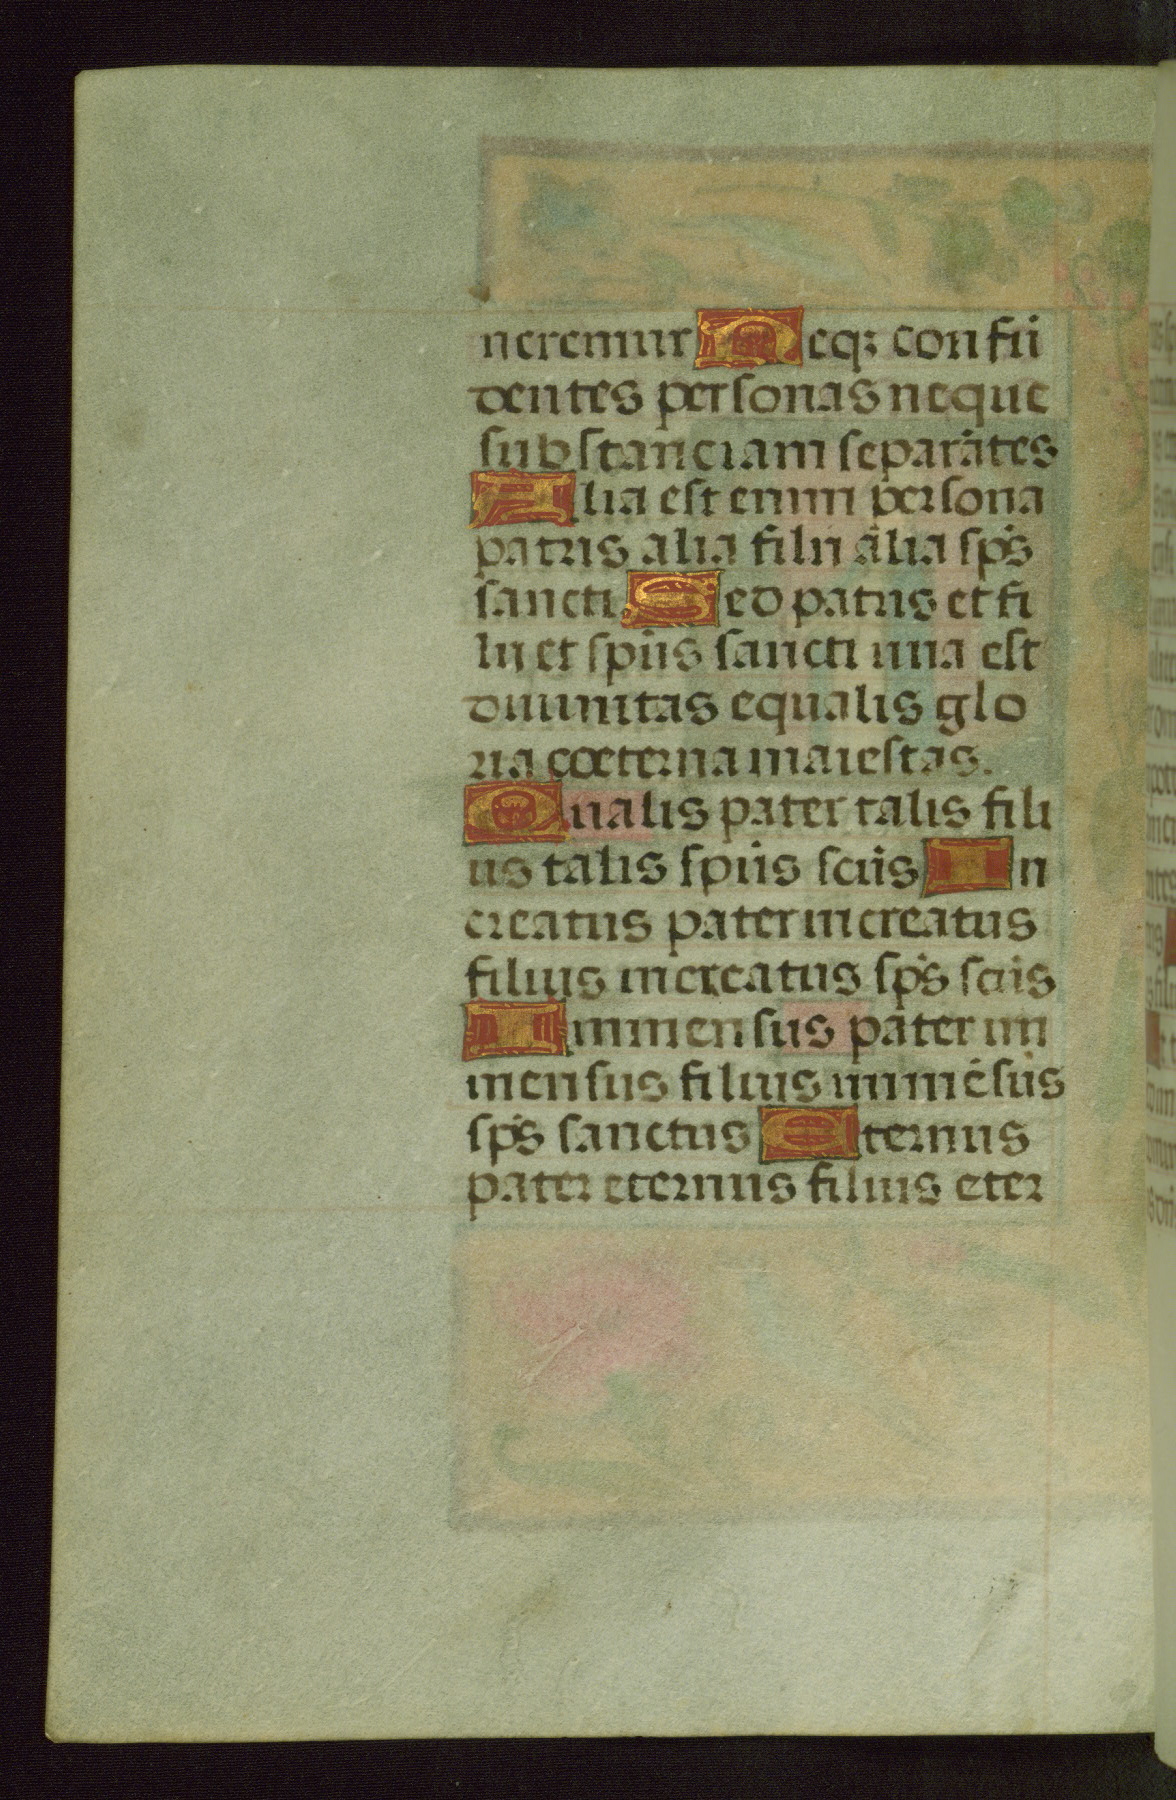 neremur Neq; confũ
dentes personas neque
substanciam separãtes
Alia est enim persona
patris alia filii alia sp̃s
sancti. Sed patris et fi
lii et sp̃us sancti una est
diuinitas equalis glo
ria coeterna maiestas.
Qualis pater talis fili
us talis sp̃us sc̃us In
creatus pater increatus
filius increatus sp̃s sc̃us
Immensus pater im
mensus filius immẽsus
sp̃s sanctus Eternus
pater eternus filius eter